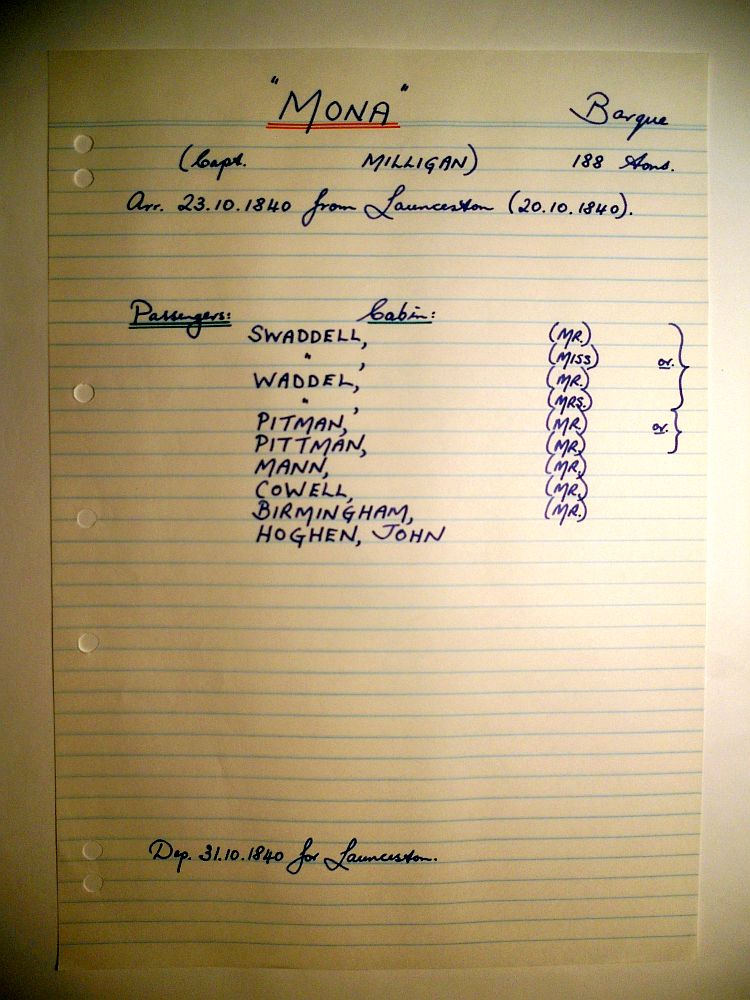 "MONA" Barque
(Capt. MILLIGAN) 188 tons.
Arr. 23.10.1840 from Launceston (20.10.1840).
Passengers: Cabin:
SWADDELL, (MR.)
" , (MISS)
WADDEL, (MR.) or.
" , (MRS.)
PITMAN, (MR.) or.
PITTMAN, (MR.)
MANN, (MR.)
COWELL, (MR.)
BIRMINGHAM, (MR.)
HOGHEN, JOHN
Dep. 31.10.1840 for Launceston.